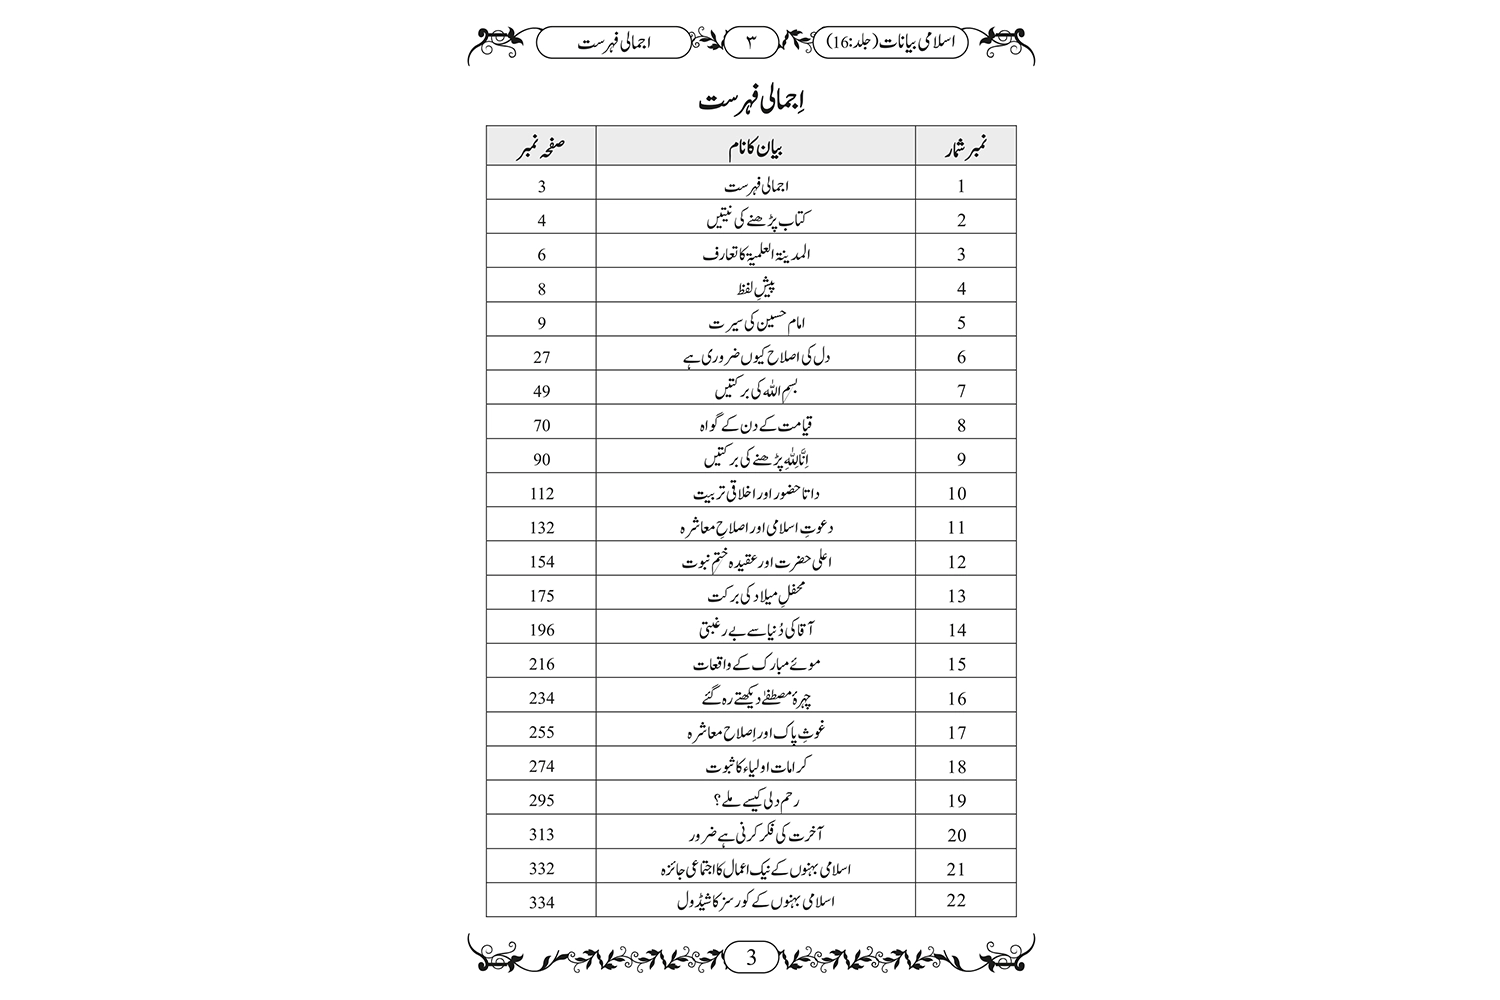 اسلامی بیانات (جلد:16) ۳ اجمالی فہرست
اِجمالی فہرست
نمبر شمار بیان کا نام صفحہ نمبر
1 اجمالی فہرست 3
2 کتاب پڑھنے کی نیتیں 4
3 المدینۃ العلمیۃ کا تعارف 6
4 پیشِ لفظ 8
5 امام حسین کی سیرت 9
6 دل کی اصلاح کیوں ضروری ہے 27
7 بسمِ اللہ کی برکتیں 49
8 قیامت کے دن کے گواہ 70
9 اِنَّا لِلّٰہِ پڑھنے کی برکتیں 90
10 داتا حضور اور اخلاقی تربیت 112
11 دعوتِ اسلامی اور اصلاحِ معاشرہ 132
12 اعلی حضرت اور عقیدہ ختمِ نبوت 154
13 محفلِ میلاد کی برکت 175
14 آقا کی دُنیا سے بے رغبتی 196
15 موئے مبارک کے واقعات 216
16 چہرۂ مصطفےٰ دیکھتے رہ گئے 234
17 غوثِ پاک اور اِصلاح معاشرہ 255
18 کرامات اولیاء کا ثبوت 274
19 رحم دلی کیسے ملے؟ 295
20 آخرت کی فکر کرنی ہے ضرور 313
21 اسلامی بہنوں کے نیک اعمال کا اجتماعی جائزہ 332
22 اسلامی بہنوں کے کورسز کا شیڈول 334
3